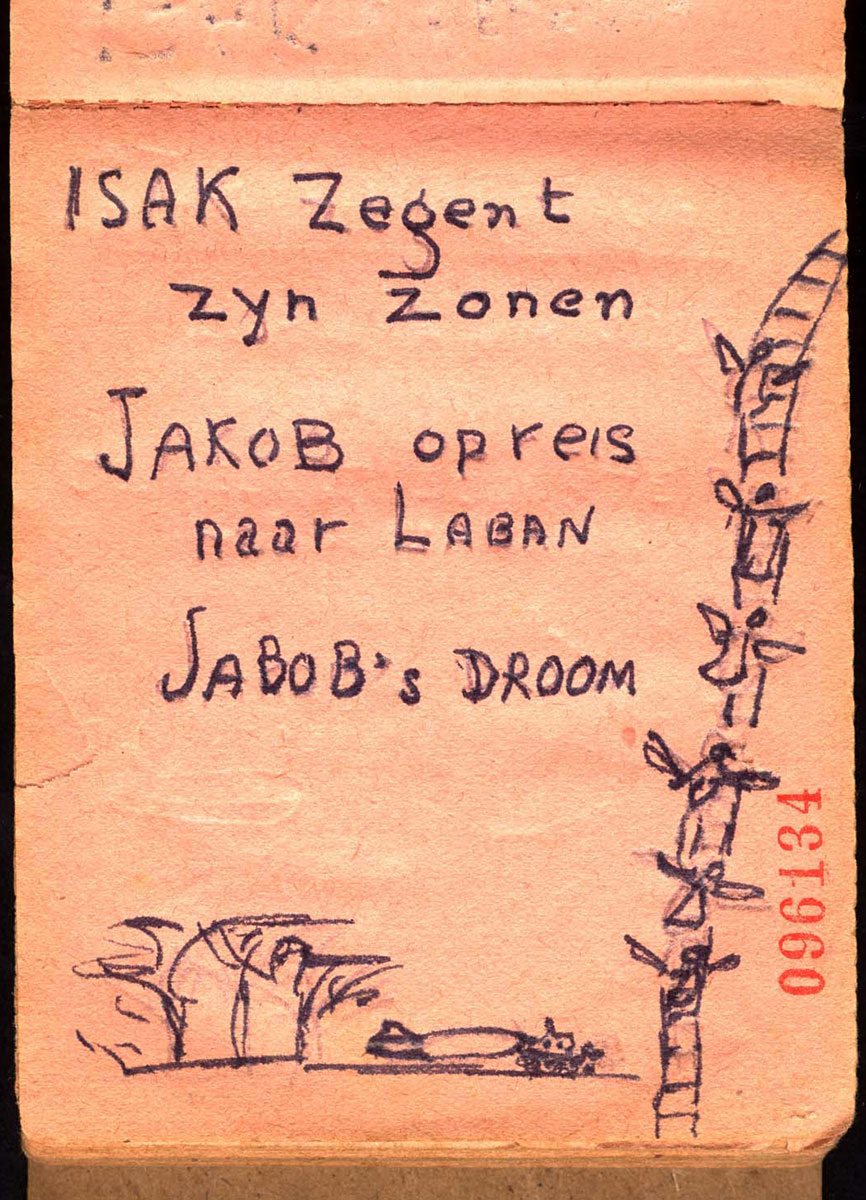 ISAK Zegent
zyn zonen
JAKOB opreis
naar LABAN
JABOB's DROOM
096134